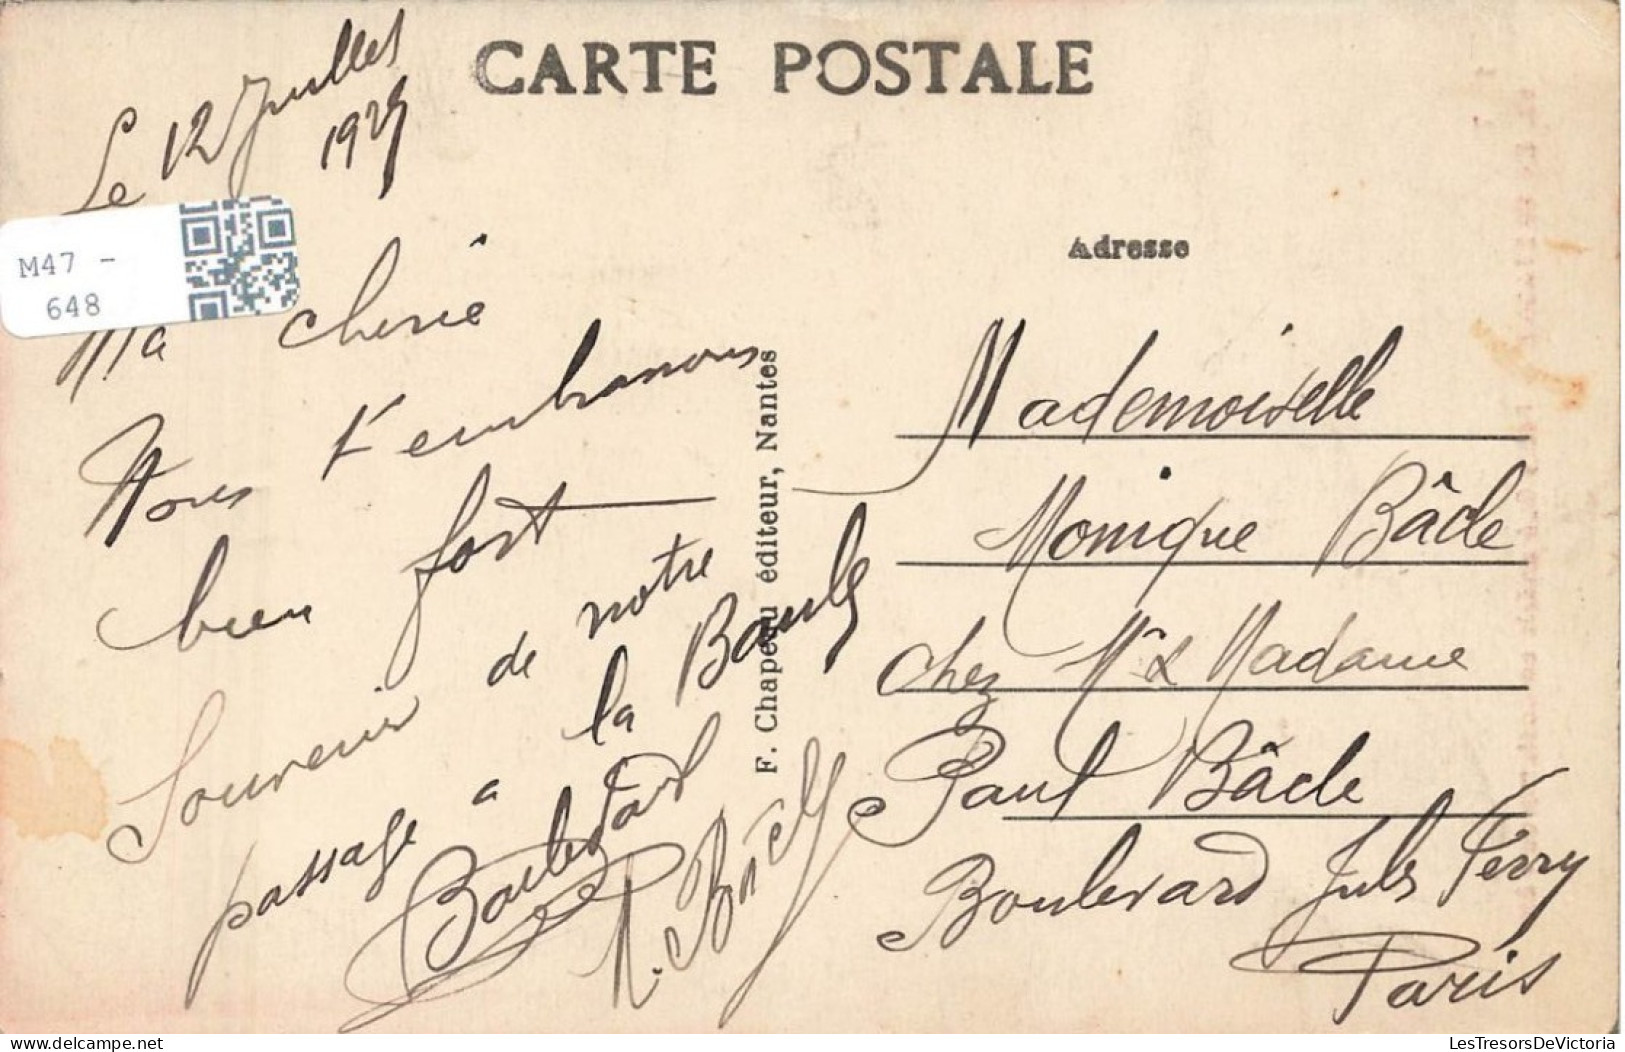 CARTE POSTALE
Le 12 Juillet
1925
M47 -
648
Ma cherie
Nous t'embrassons
bien fort
Souvenir de notre
passage a la Baule
F. Chapeau éditeur, Nantes
Adresse
Mademoiselle
Monique Bâcle
chez Mr & Madame
Paul Bâcle
Boulevard Jules Ferry
Paris
LesTresorsDeVictoria
https://www.delcampe.net